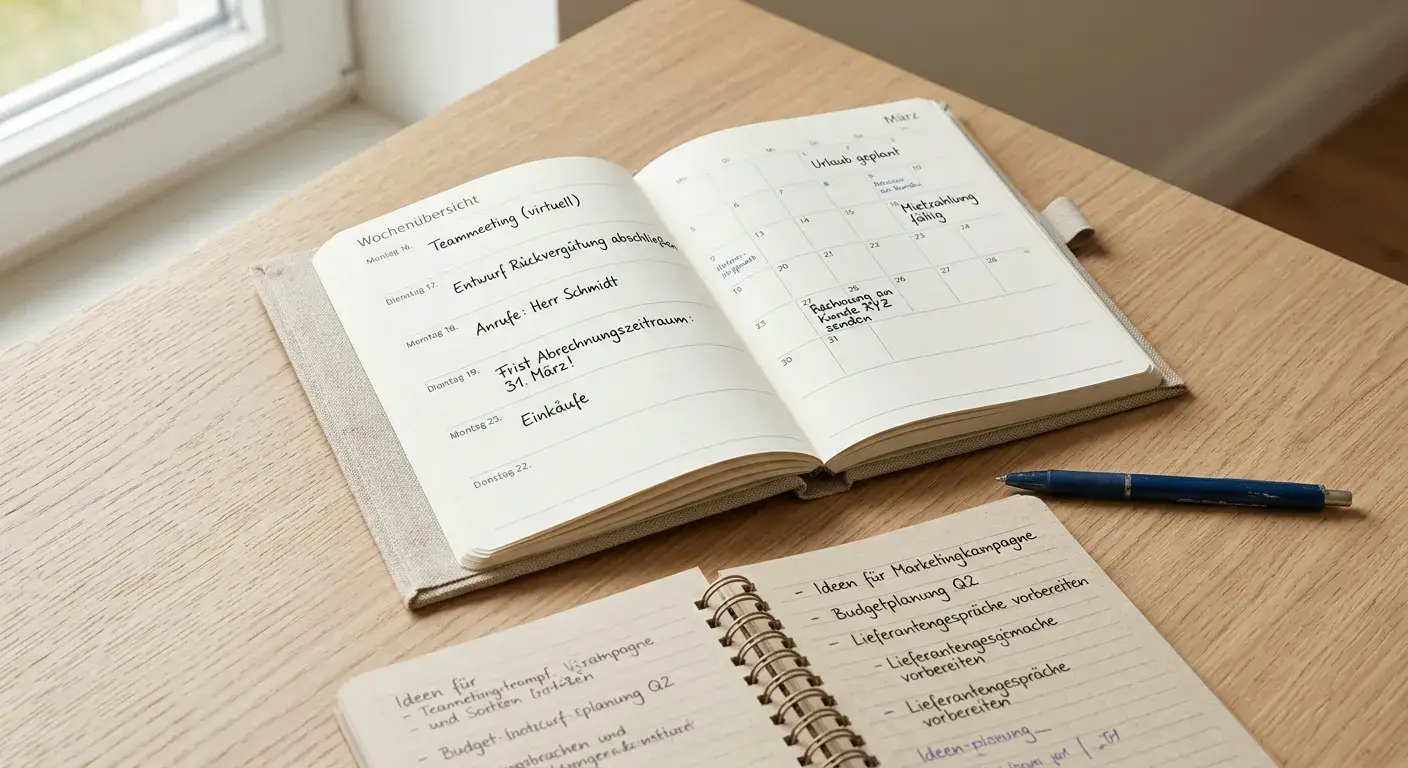 Wochenübersicht
Montag 16. Teammeeting (virtuell)
Dienstag 17. Entwurf Rückvergütung abschließen
Montag 18. Anrufe: Herr Schmidt
Diontag 19. Frist Abrechnungszeitraum:
31. März!
Montag 23. Einkäufe
Donstag 22.
März
Urlaub geplant
6 7 8 9 10
Mietzahlung
fällig
13 14 15
20 21 22 23 24
27 25 26 27 28
Rechnung an
Kunde XYZ
senden
30 31
- Ideen für Marketingkampagne
- Budgetplanung Q2
- Lieferantengespräche vorbereiten
- Lieferantengesgrmache
vorbereiten
- Lieferantengespräche
vorbereiten
Ideen-planung
Ideen für
und
planung Q2
und